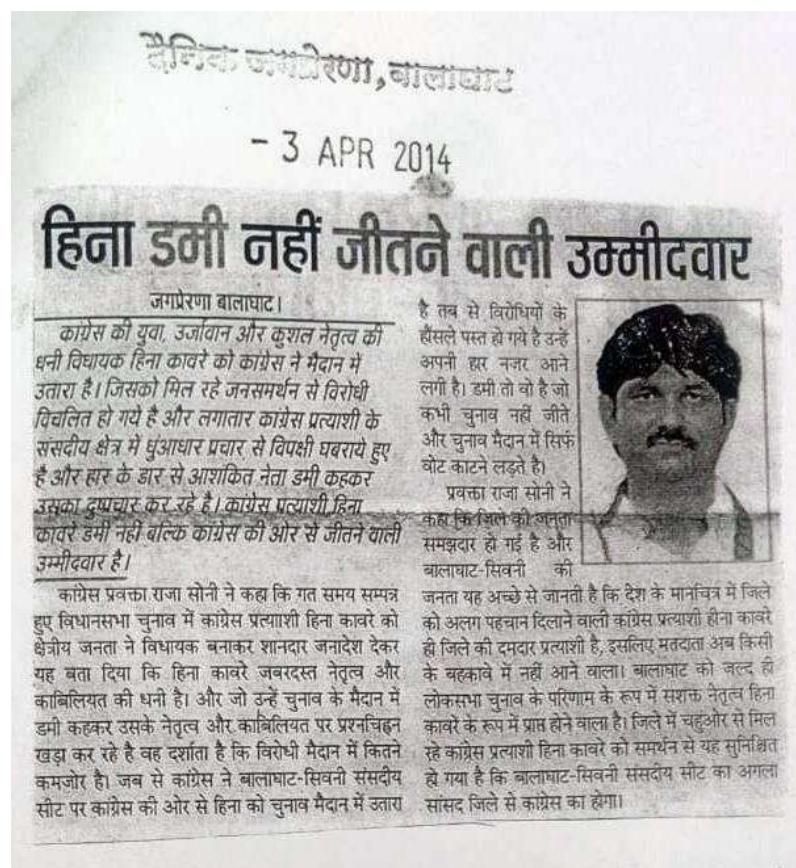 दैनिक जगप्रेरणा, बालाघाट
- 3 APR 2014
हिना डमी नहीं जीतने वाली उम्मीदवार
जगप्रेरणा बालाघाट।
कांग्रेस की युवा, उर्जावान और कुशल नेतृत्व की
धनी विधायक हिना कावरे को कांग्रेस ने मैदान में
उतारा है। जिसको मिल रहे जनसमर्थन से विरोधी
विचलित हो गये है और लगातार कांग्रेस प्रत्याशी के
संसदीय क्षेत्र में धुंआधार प्रचार से विपक्षी घबराये हुए
है और हार के डार से आशकित नेता डमी कहकर
उसका दुष्प्रचार कर रहे है। कांग्रेस प्रत्याशी हिना
कावरे डमी नहीं बल्कि कांग्रेस की ओर से जीतने वाली
उम्मीदवार है।
कांग्रेस प्रवक्ता राजा सोनी ने कहा कि गत समय सम्पन्न
हुए विधानसभा चुनाव में कांग्रेस प्रत्याशी हिना कावरे को
क्षेत्रीय जनता ने विधायक बनाकर शानदार जनादेश देकर
यह बता दिया कि हिना कावरे जबरदस्त नेतृत्व और
काबिलियत की धनी है। और जो उन्हें चुनाव के मैदान में
डमी कहकर उसके नेतृत्व और काबिलियत पर प्रश्नचिह्न
खड़ा कर रहे है वह दर्शाता है कि विरोधी मैदान में कितने
कमजोर है। जब से कांग्रेस ने बालाघाट-सिवनी संसदीय
सीट पर कांग्रेस की ओर से हिना को चुनाव मैदान में उतारा
है तब से विरोधियों के
हौंसले पस्त हो गये है उन्हें
अपनी हार नजर आने
लगी है। डमी तो वो है जो
कभी चुनाव नहीं जीते
और चुनाव मैदान में सिर्फ
वोट काटने लड़ते है।
प्रवक्ता राजा सोनी ने
कहा कि जिले की जनता
समझदार हो गई है और
बालाघाट-सिवनी की
जनता यह अच्छे से जानती है कि देश के मानचित्र में जिले
को अलग पहचान दिलाने वाली कांग्रेस प्रत्याशी हीना कावरे
ही जिले की दमदार प्रत्याशी है, इसलिए मतदाता अब किसी
के बहकावे में नहीं आने वाला। बालाघाट को जल्द ही
लोकसभा चुनाव के परिणाम के रूप में सशक्त नेतृत्व हिना
कावरे के रूप में प्राप्त होने वाला है। जिले में चहुंओर से मिल
रहे कांग्रेस प्रत्याशी हिना कावरे को समर्थन से यह सुनिश्चित
हो गया है कि बालाघाट-सिवनी संसदीय सीट का अगला
सांसद जिले से कांग्रेस का होगा।